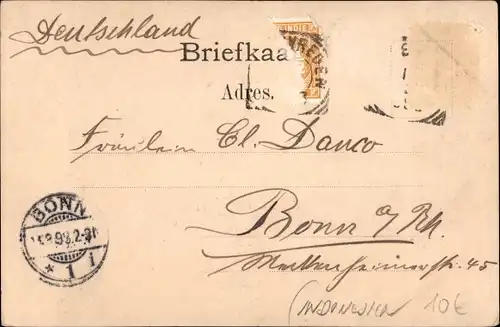 Deutschland
Briefkaa
VREDEN
Adres.
Fräulein Cl. Danco
BONN
2-3N
* 1 i
Bonn a/Rh.
Meckenheimerstr. 45
(INDONESIEN 10€